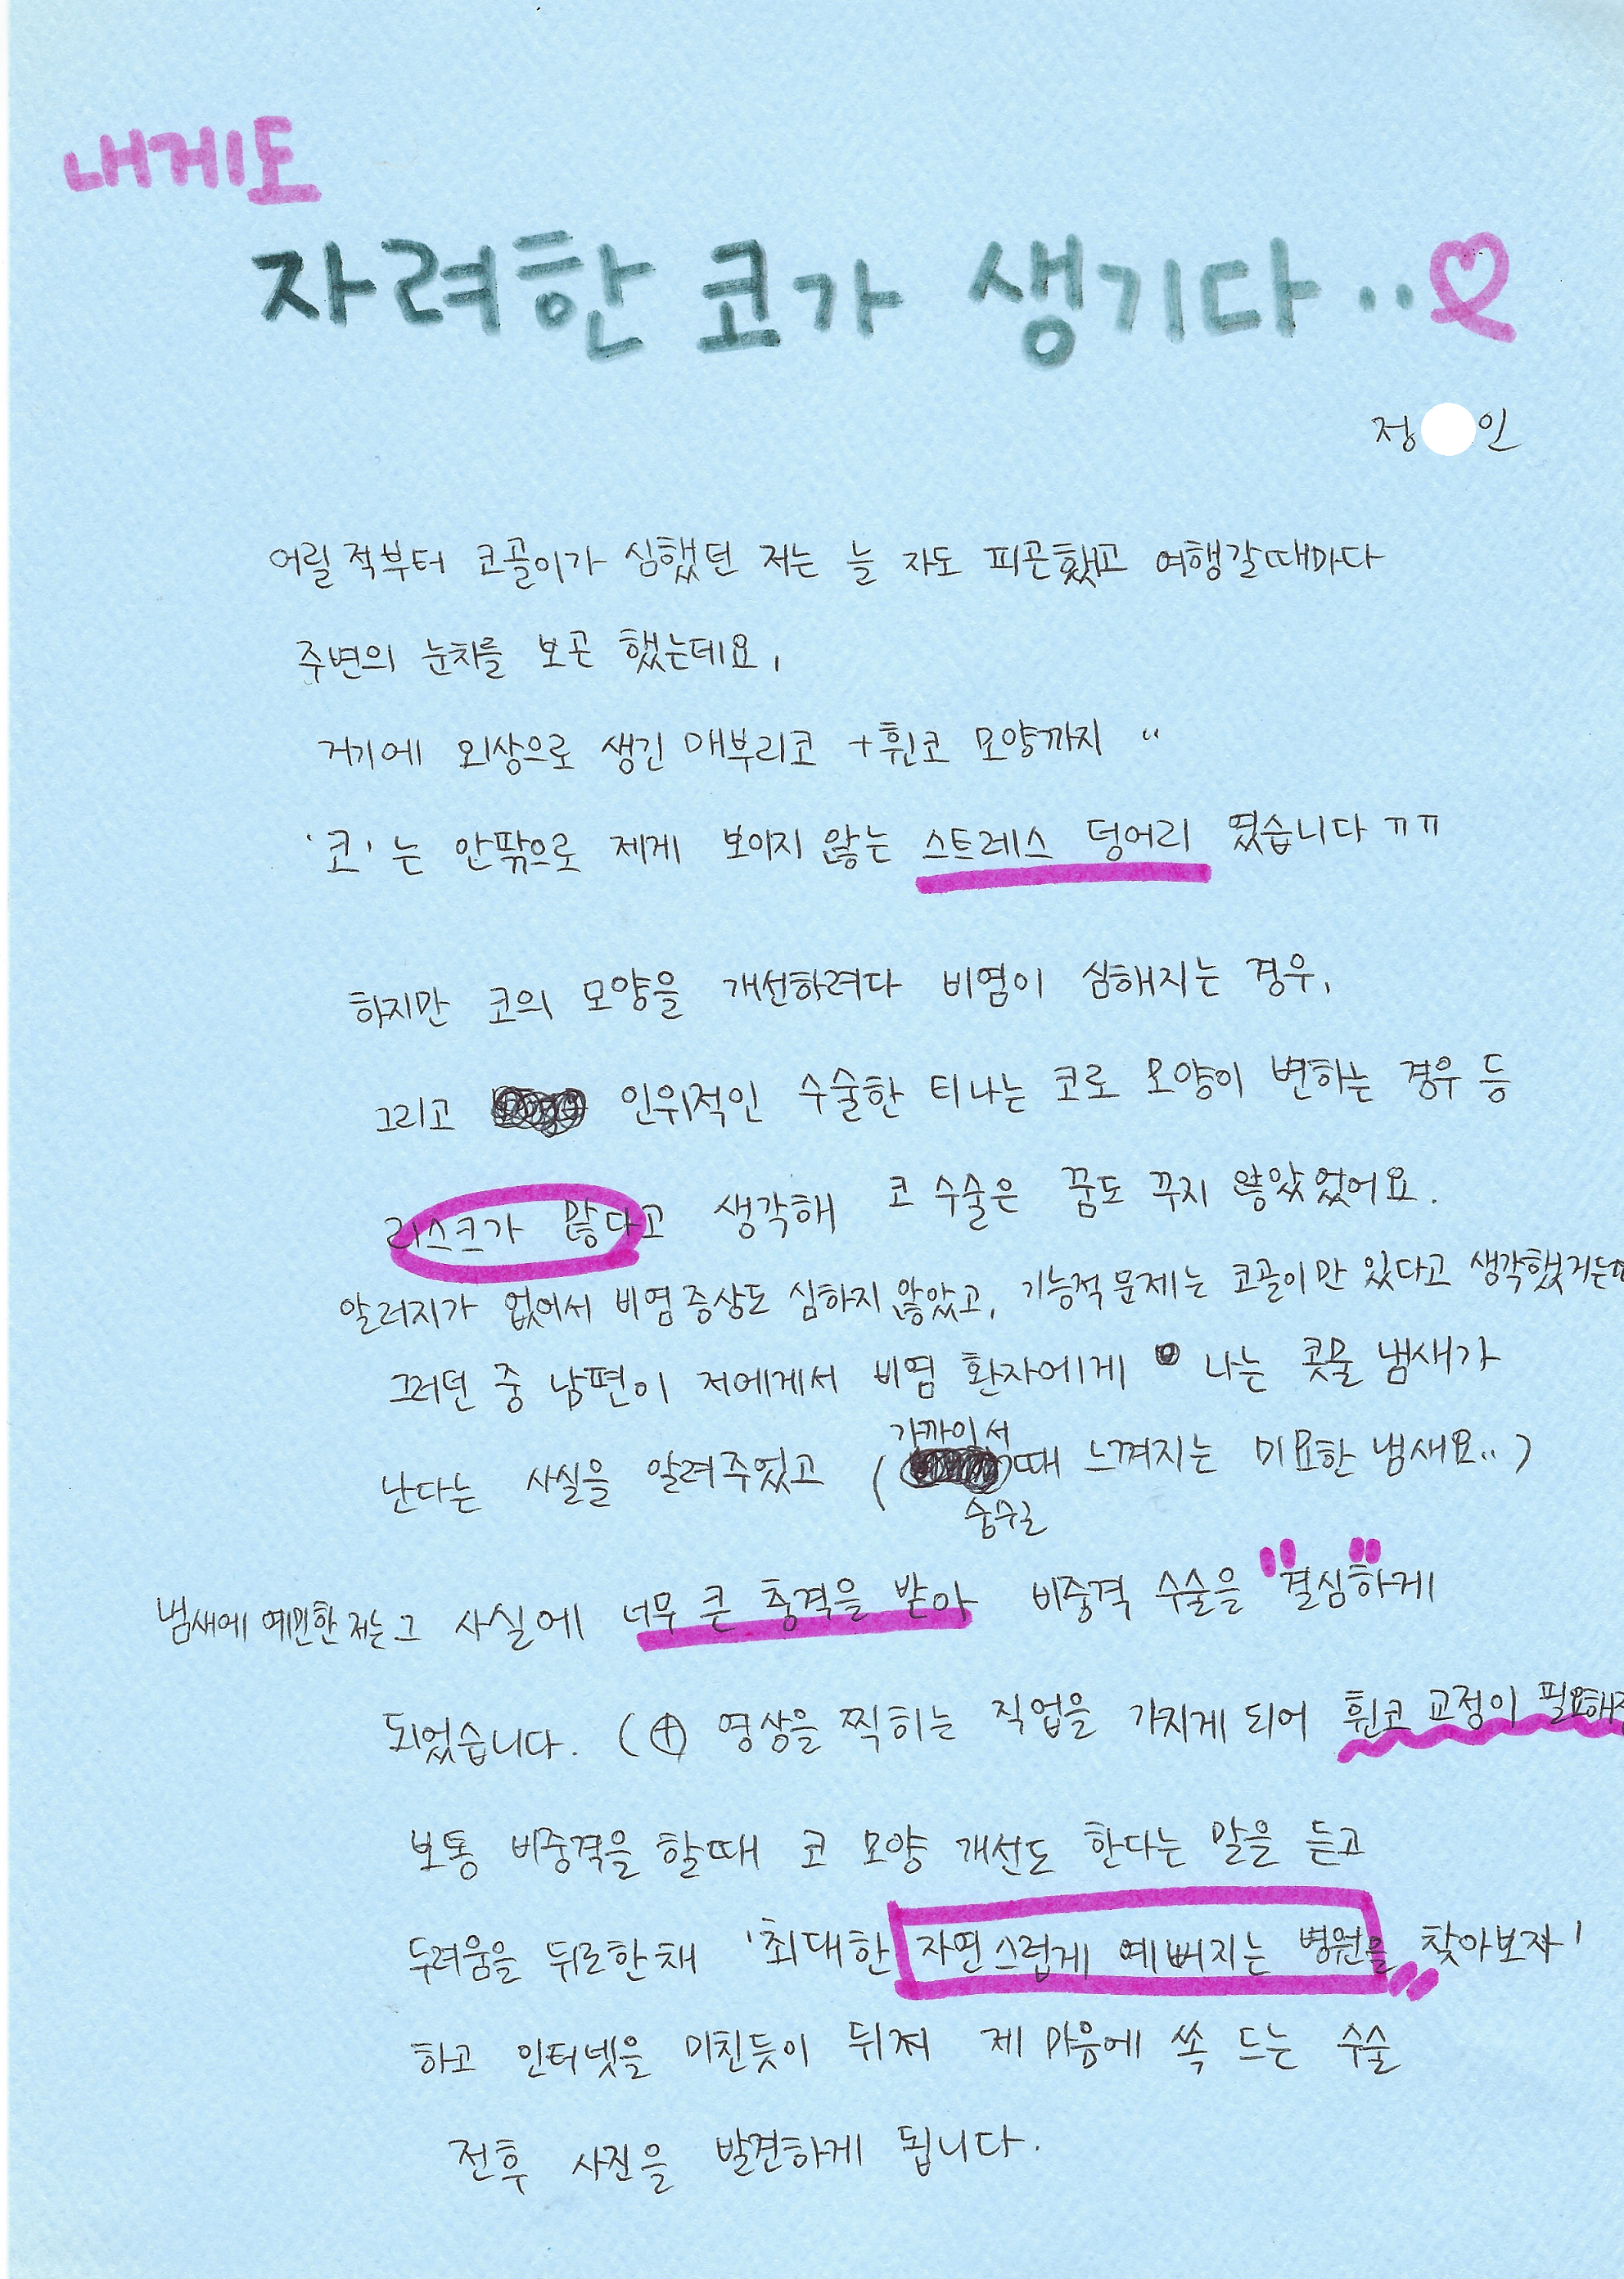 내게도
자려한 코가 생기다..
정 인
어릴 적부터 코골이가 심했던 저는 늘 자도 피곤했고 여행갈때마다
주변의 눈치를 보곤 했는데요,
거기에 외상으로 생긴 매부리코 +휜코 모양까지 ..
'코'는 안팎으로 제게 보이지 않는 스트레스 덩어리 였습니다 ㅠㅠ
하지만 코의 모양을 개선하려다 비염이 심해지는 경우,
그리고 인위적인 수술한 티나는 코로 모양이 변하는 경우 등
리스크가 많다고 생각해 코 수술은 꿈도 꾸지 않았었어요.
알러지가 없어서 비염증상도 심하지 않았고, 기능적 문제는 코골이만 있다고 생각했거든
그러던 중 남편이 저에게서 비염 환자에게 나는 콧물 냄새가
난다는 사실을 알려주었고 ( 가까이서 숨쉴 때 느껴지는 미묘한 냄새요..)
냄새에 예민한 저는 그 사실에 너무 큰 충격을 받아 비중격 수술을 "결심"하게
되었습니다. (⊕ 영상을 찍히는 직업을 가지게 되어 휜코 교정이 필요해
보통 비중격을 할때 코 모양 개선도 한다는 말을 듣고
두려움을 뒤로한채 '최대한 자연스럽게 예뻐지는 병원을 찾아보자'
하고 인터넷을 미친듯이 뒤져 제 마음에 쏙 드는 수술
전후 사진을 발견하게 됩니다.